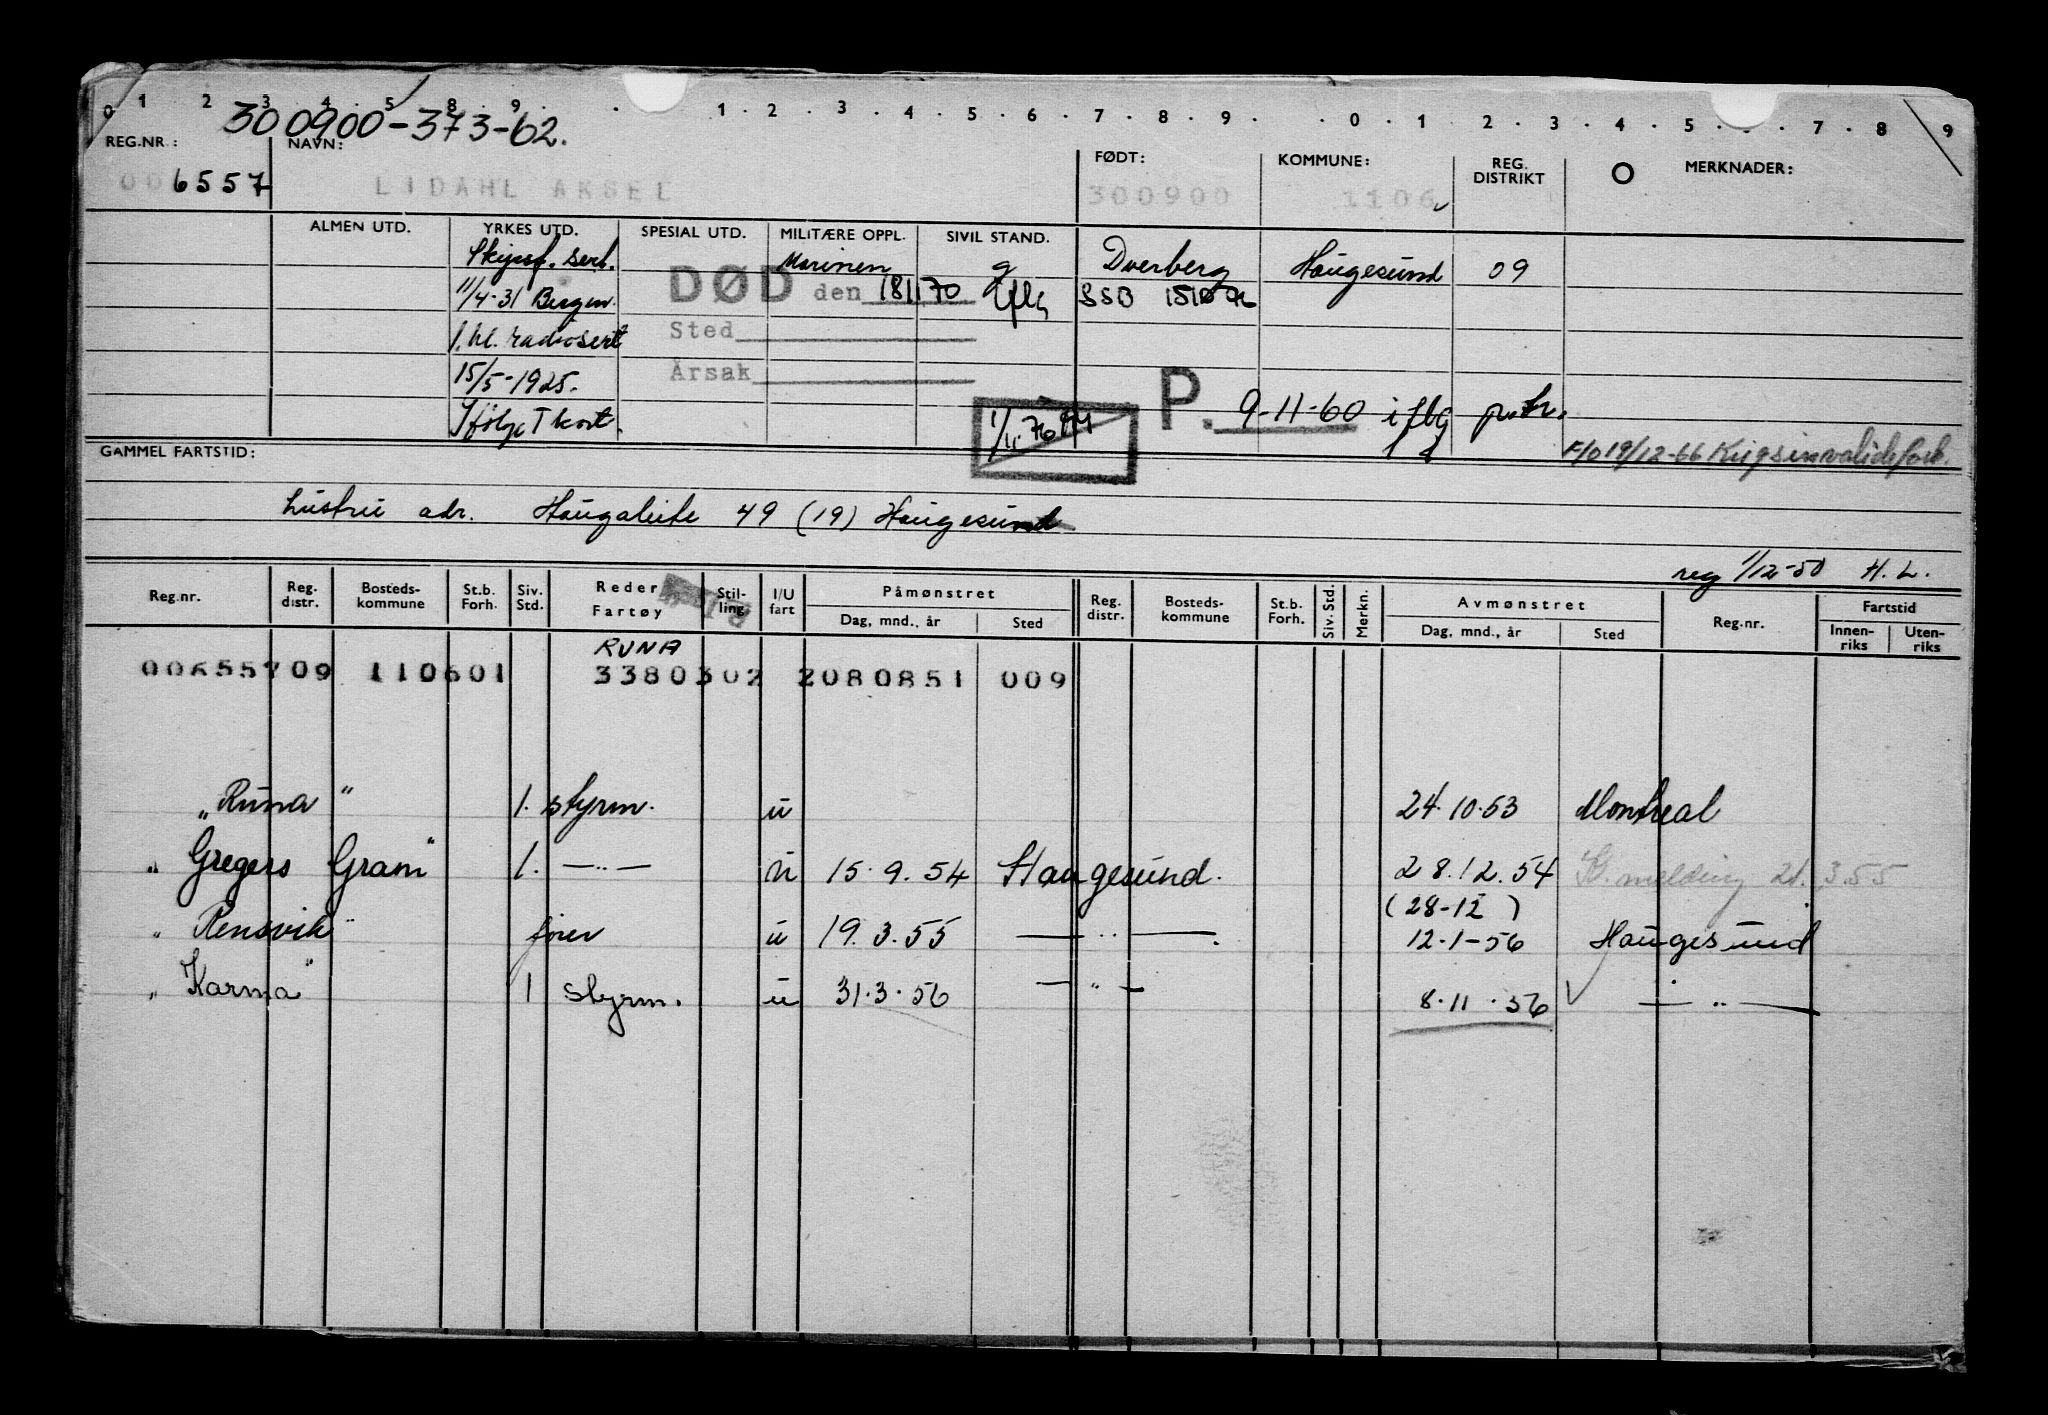 0 1 2 3 4 5 8 9 . . 1 . 2 . 3 . 4 . 5 . 6 . 7 . 8 . 9 . . 0 . 1 . 2 . 3 . 4 . 5 . . . 7 . 8 9
300900-373-62.
REG.NR.: NAVN: FØDT: KOMMUNE: REG. DISTRIKT MERKNADER:
006557 LIDAHL AKSEL 300900 1106
ALMEN UTD. YRKES UTD. SPESIAL UTD. MILITÆRE OPPL. SIVIL STAND.
Skipsf. sert. Marinen g Dverberg Haugesund 09
11/4-31 Bergen DØD den 181170 iflg SSB
1. kl. radiosert Sted
15/5-1925. Årsak
Ifølge T kort. 1/11. 76 P. 9-11-60 iflg p.tr.
GAMMEL FARTSTID: F/o 19/12-66 Krigsinvalideforb.
hustru adr. Haugaleite 49 (19) Haugesund
reg 1/12-50 H.L.
Reg.nr. Reg. distr. Bosteds-kommune St.b. Forh. Siv. Std. Rederi Fartøy Stil-ling I/U fart Påmønstret Reg. distr. Bosteds-kommune St.b. Forh. Siv. Std. Merkn. Avmønstret Reg.nr. Fartstid
Dag, mnd., år Sted Dag, mnd., år Sted Innen-riks Uten-riks
RUNA
00655709 110601 3380302 2080851 009
„Runa" 1. styrm. u 24.10.53 Montreal
„Gregers Gram" 1. —"— u 15.9.54 Haugesund. 28.12.54 melding 21.3.55
(28-12)
„Rensvik" fører u 19.3.55 —"— 12.1-56 Haugesund
„Karma" 1 styrm. u 31.3.56 —"— 8.11.56 —"—